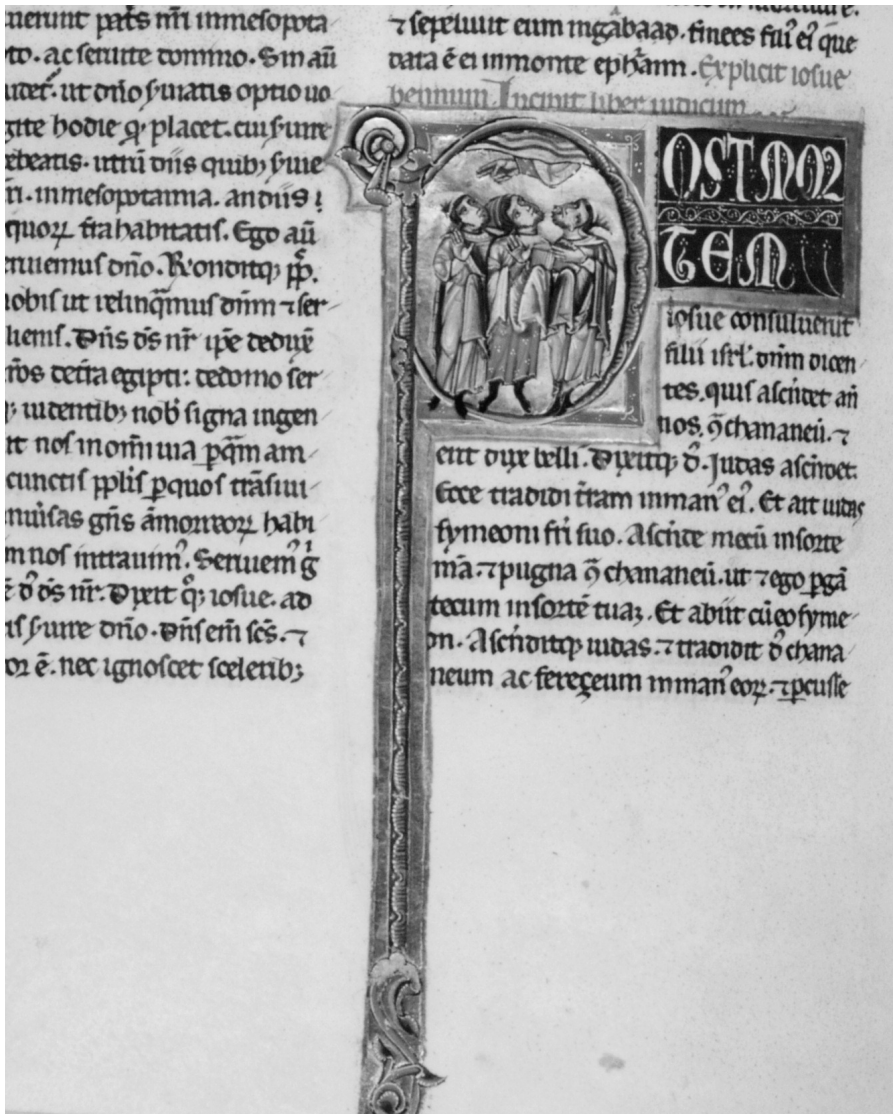 uerunt patͥs nr̄i inmesopota
to. ac seruite domino. Sin aū
ut dn̄o s̓uiatis optio uo
gite hodie qͥ placet. cui s̓uire
ebeatis. utrū diis quibꝫ s̓uie
r̄i. in mesopotamia. an diis i
quoꝝ tr̄a habitatis. Ego aū
eruiemus dn̄o. R̓onditqꝫ pp̄.
nobis ut relinqͣmus dn̄m ⁊ ser
lienis. Dn̄s ds̄ nr̄ ip̄e deduxͥ
r̄os deterra egipti: dedomo ser
ꝫ uidentibꝫ nob̓ signa ingen
it nos in om̄i uia ꝑqͣm am
cunctis ppl̓is ꝑquos trāsiui
uniu̓sas gn̄s āmorreoꝝ habi
m nos intrauim᾽. Seruiem᾽ gͥ
ē ds̄ nr̄. Dixit qꝫ iosue. ad
tis s̓uire dn̄o. Dn̄s em̄ sc̄s. ⁊
or ē. nec ignoscet sceleribꝫ
⁊ sepeliuit eum ingabaad. finees filii ei᾽ que
data ē ei inmonte ephͣim. Explicit iosue
bennum Incipit liber iudicum
POST MOR
TEM
iosue consuluerunt
filii isrl̓. dn̄m dicen
tes. quis ascn̓det an̄
nos. 9̄ chananeū. ⁊
erit dux belli. Dixitqꝫ d᾽. Iudas ascn̓det.
Ecce tradidi tr̄am inman᾽ ei᾽. Et ait iudas
symeoni fr̄i suo. Ascn̓de mecū insorte
mēa. ⁊ pugna 9̄ chananeū. ut ⁊ ego ꝑgā
tecum insortē tuaꝫ. Et abiit cū eo syme
on. Ascn̓ditqꝫ iudas. ⁊ tradidit d᾽ chana
neum ac ferezeum inman᾽ eoꝝ. ⁊ ꝑcusse